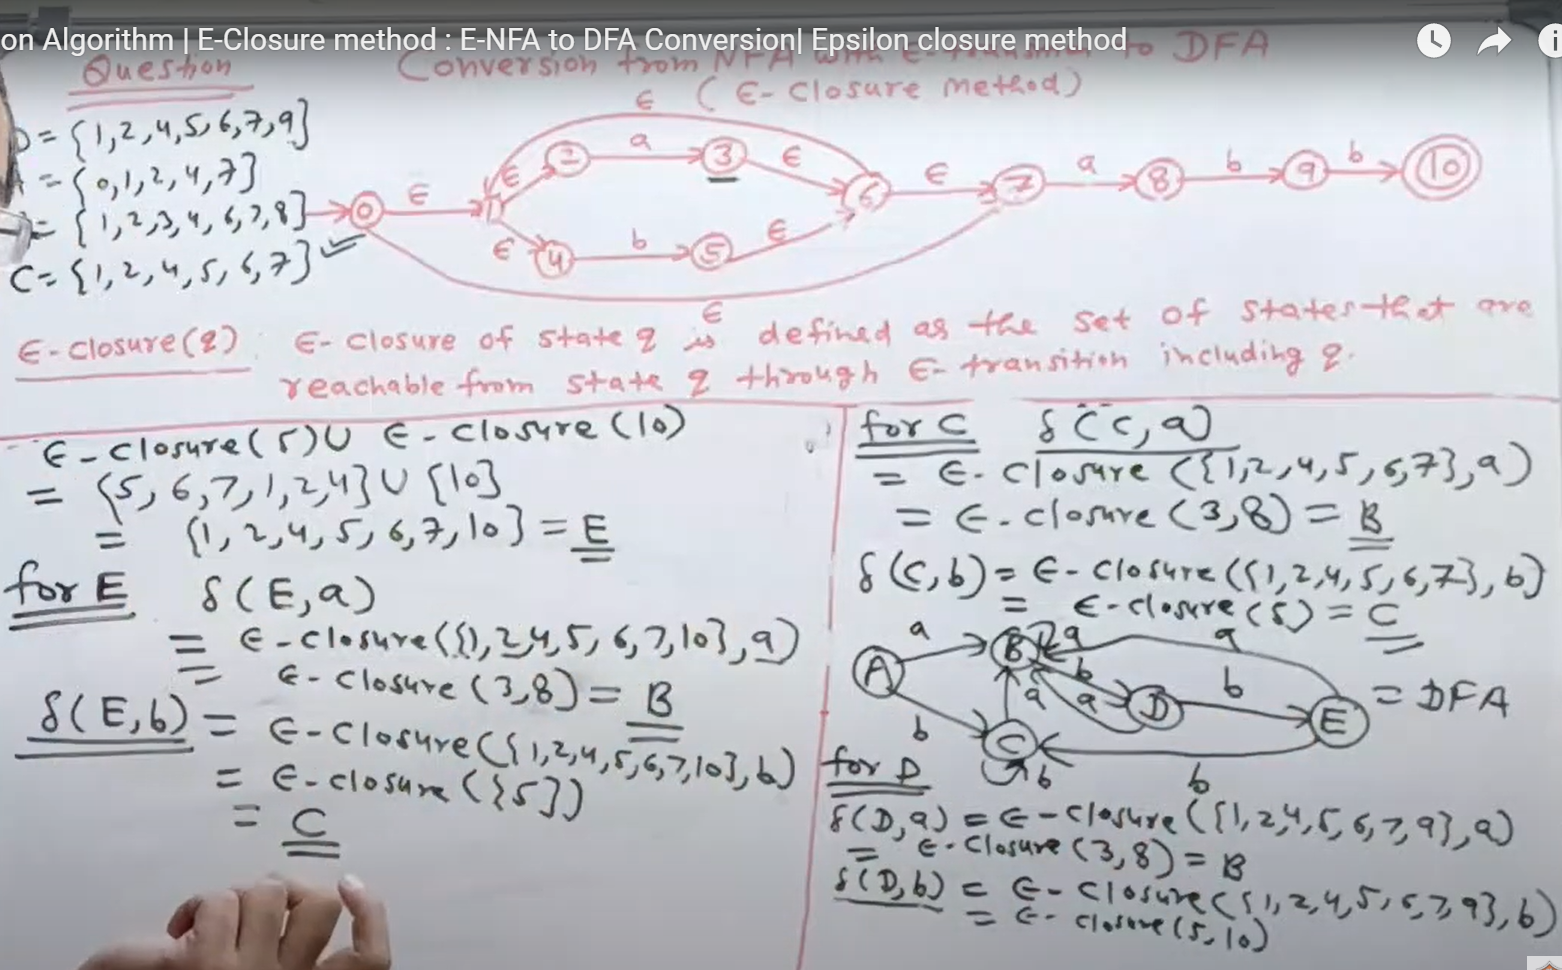 on Algorithm | E-Closure method : E-NFA to DFA Conversion| Epsilon closure method
Question
Conversion from NFA with ε-transition to DFA
(ε-closure method)
= {1,2,4,5,6,7,9}
= {0,1,2,4,7}
= {1,2,3,4,6,7,8}
C= {1,2,4,5,6,7}
0
ε
1
ε
2
a
3
ε
ε
4
b
5
ε
6
ε
7
a
8
b
9
b
10
ε
ε
ε-closure(q) : ε-closure of state q is defined as the set of states that are
reachable from state q through ε-transition including q.
ε-closure(5)∪ ε-closure(10)
= {5,6,7,1,2,4}∪{10}
= {1,2,4,5,6,7,10} = E
for E δ(E,a)
= ε-closure({1,2,4,5,6,7,10},a)
= ε-closure(3,8) = B
δ(E,b) = ε-closure({1,2,4,5,6,7,10},b)
= ε-closure({5})
= C
for C δ(C,a)
= ε-closure({1,2,4,5,6,7},a)
= ε-closure(3,8) = B
δ(C,b) = ε-closure({1,2,4,5,6,7},b)
= ε-closure(5) = C
A
a
B
a
a
b
a
a
D
b
E
= DFA
b
C
b
b
for D
δ(D,a) = ε-closure({1,2,4,5,6,7,9},a)
= ε-closure(3,8) = B
δ(D,b) = ε-closure({1,2,4,5,6,7,9},b)
= ε-closure(5,10)